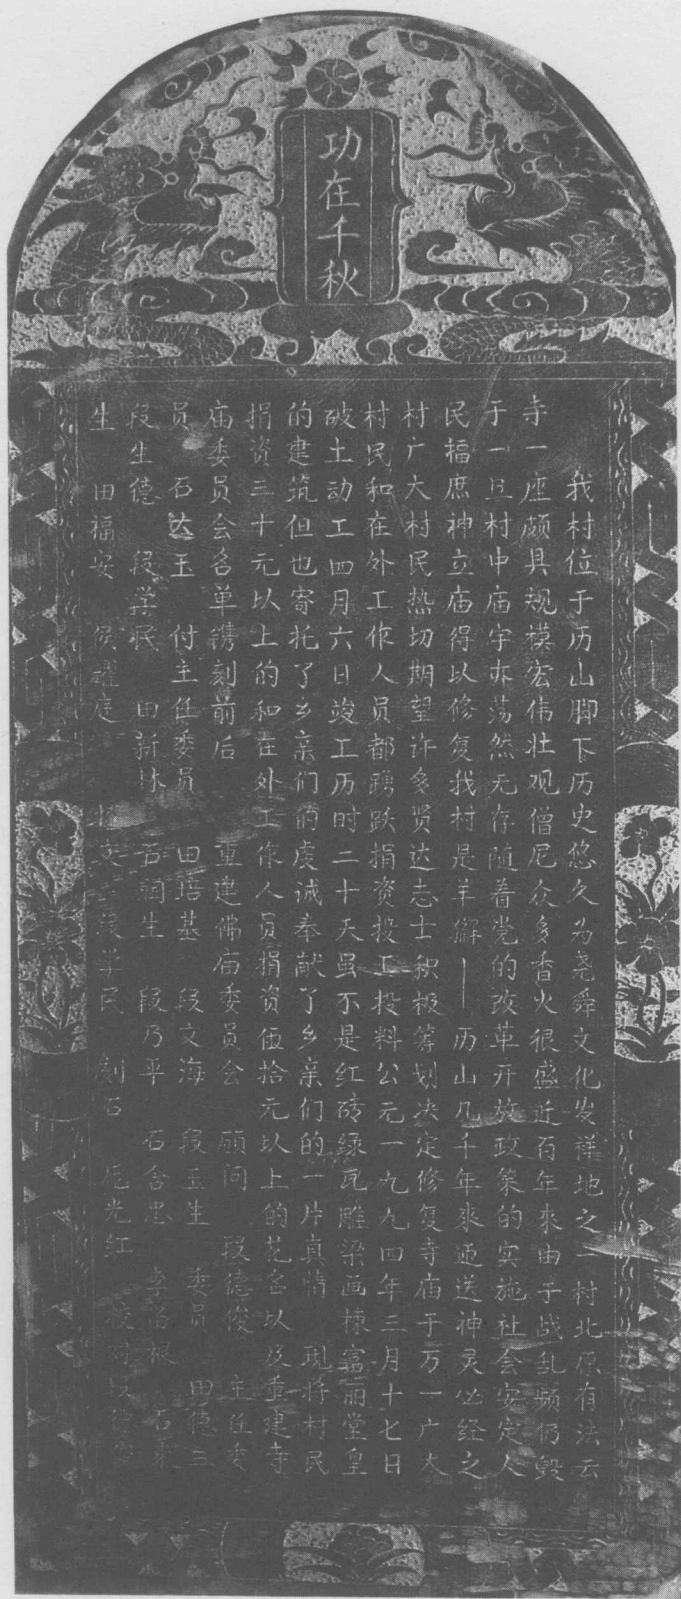 功在千秋
我村位于历山脚下历史悠久为尧舜文化发祥地之一村北原有法云
寺一座颇具规模宏伟壮观僧尼众多香火很盛近百年来由于战乱频仍毁
于一旦村中庙宇亦荡然无存随着党的改革开放政策的实施社会安定人
民福庶神立庙得以修复我村是羊獬——历山几千年来迎送神灵必经之
村广大村民热切期望许多贤达志士积极筹划决定修复寺庙于万一广大
村民和在外工作人员都踊跃捐资投工投料公元一九九四年三月十七日
破土动工四月六日竣工历时二十天虽不是红砖绿瓦雕梁画栋富丽堂皇
的建筑但也寄托了乡亲们的虔诚奉献了乡亲们的一片真情 现将村民
捐资三十元以上的和在外工作人员捐资伍拾元以上的花名以及重建寺
庙委员会名单镌刻前后 重建佛庙委员会 顾问 段德俊 主任委
员 石达玉 付主任委员 田培基 段文海 段玉生 委员 田德三
段生德 段学民 田新林 石润生 段乃平 石含忠 李 根 石
生 田福安 侯耀庭 文 学民 刻石 光红 校对